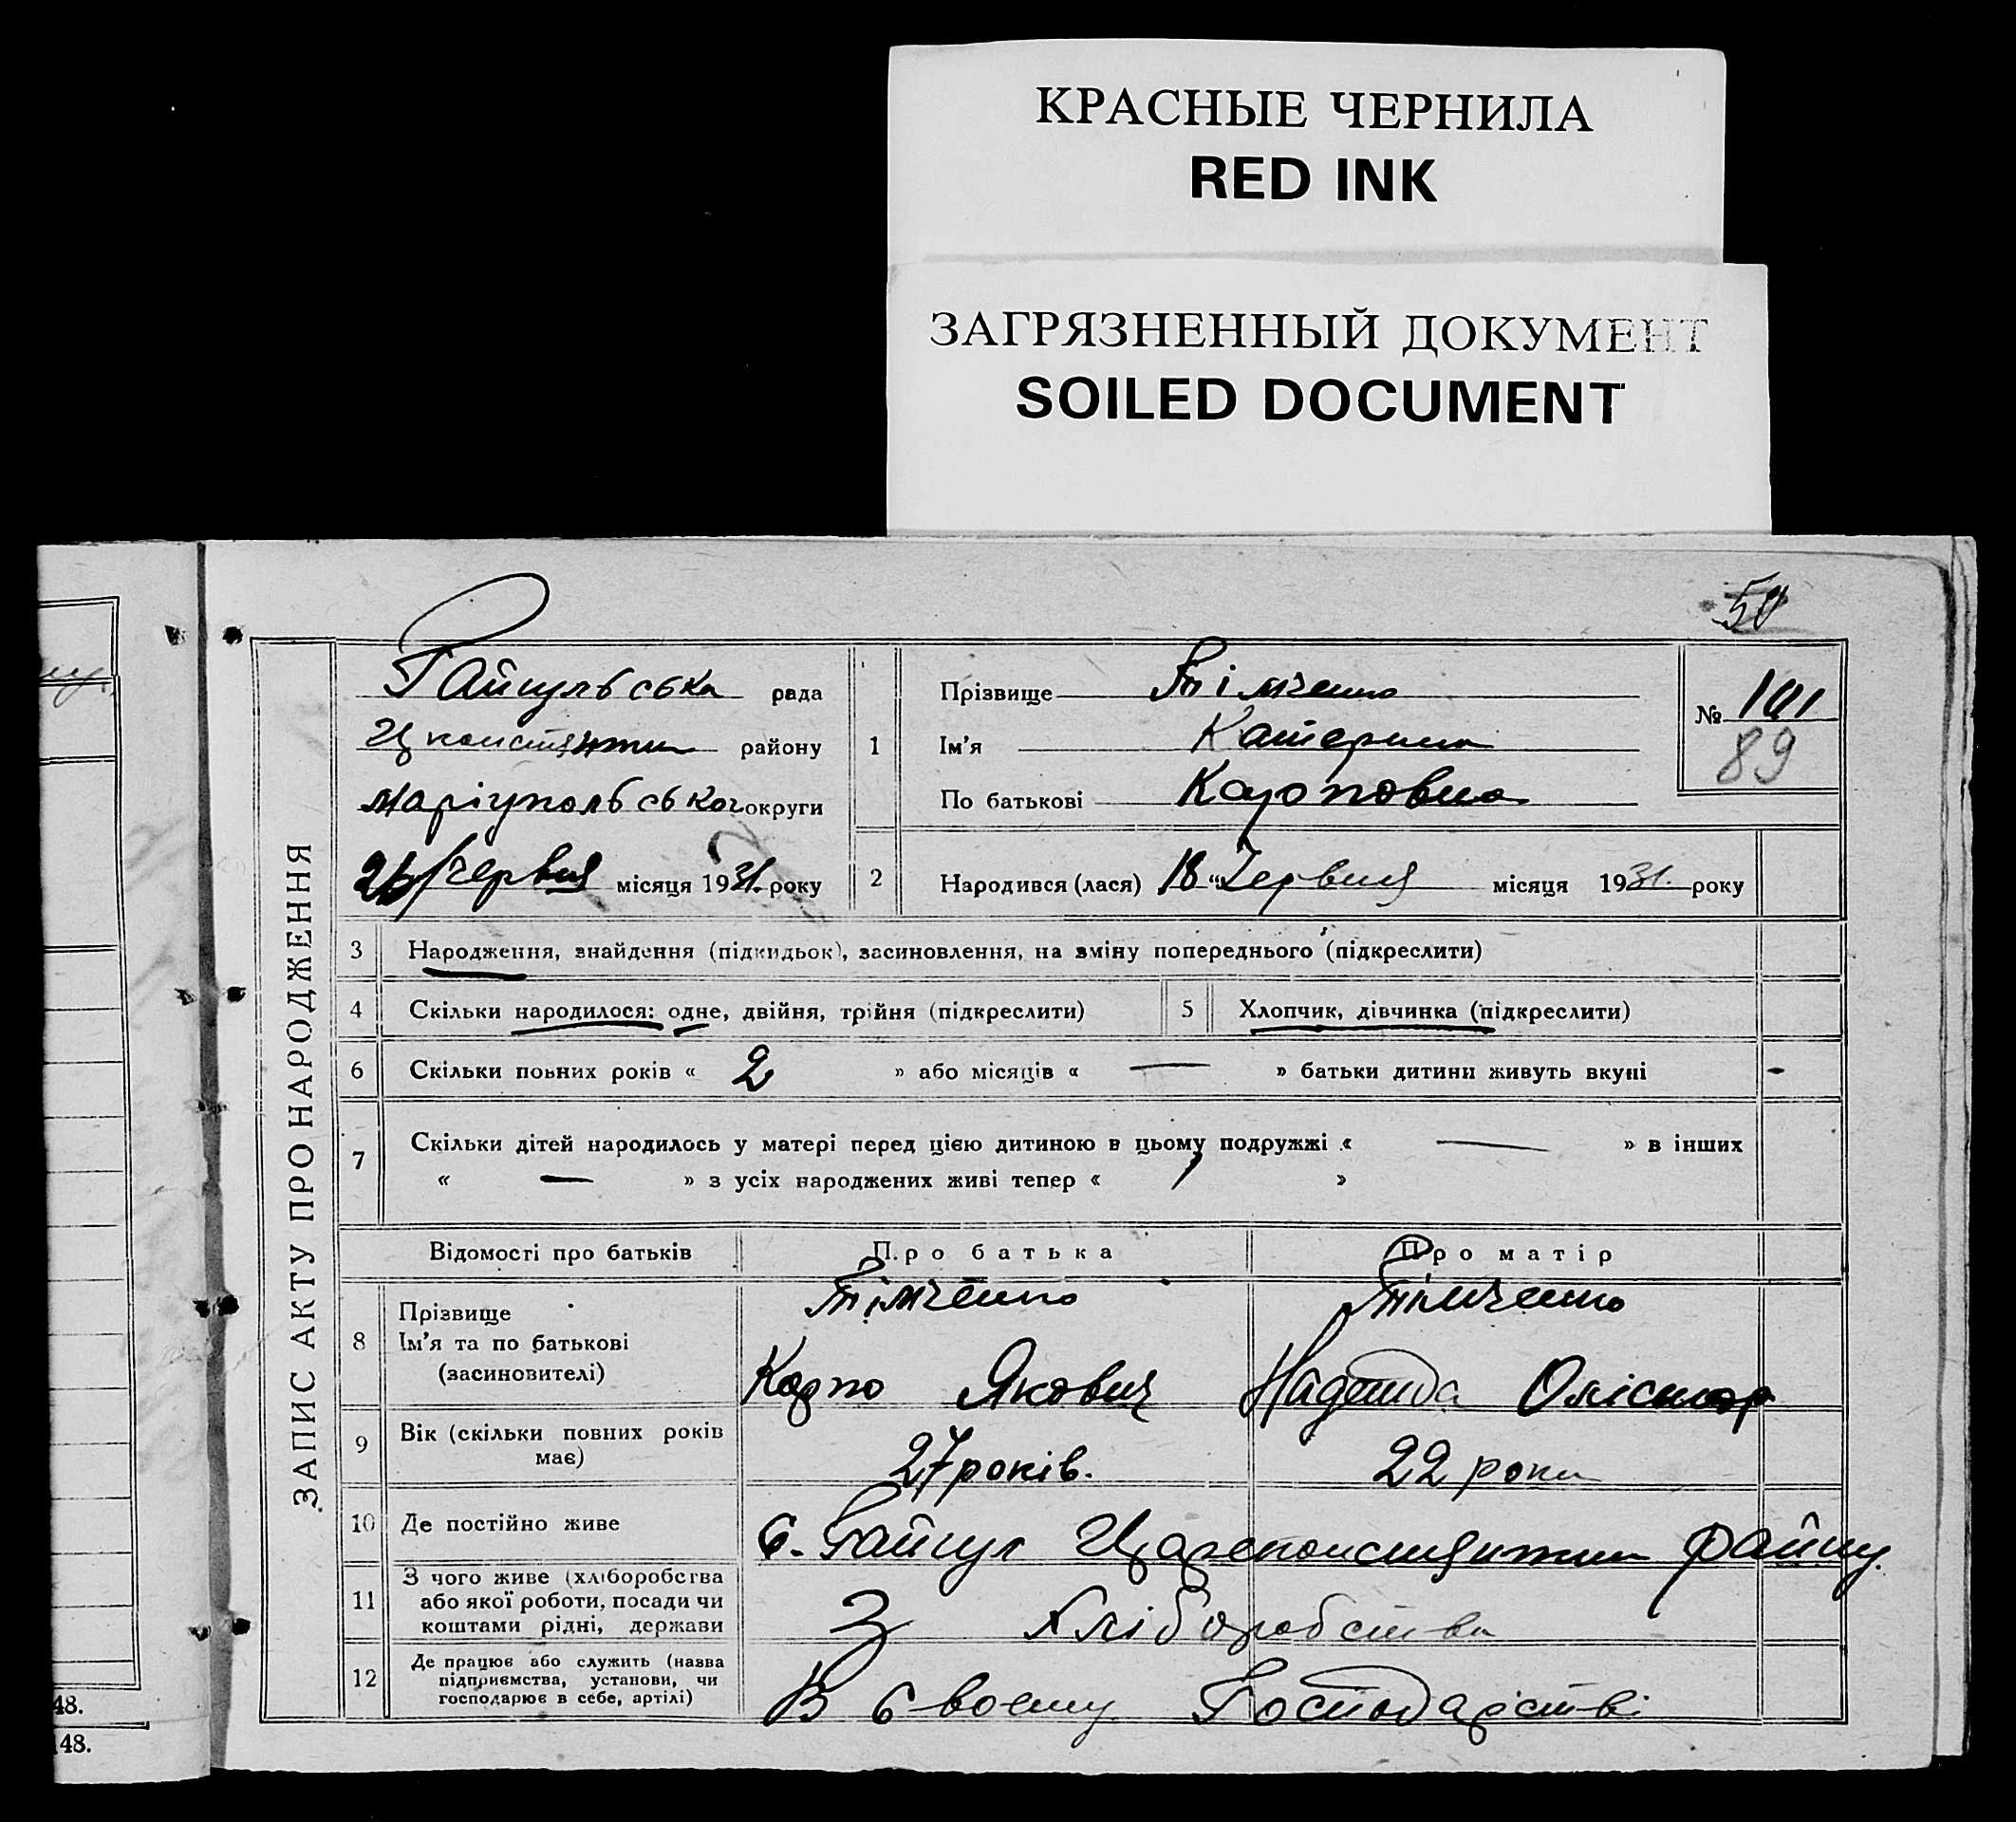 КРАСНЫЕ ЧЕРНИЛА
RED INK
ЗАГРЯЗНЕННЫЙ ДОКУМЕНТ
SOILED DOCUMENT
ЗАПИС АКТУ ПРО НАРОДЖЕННЯ
Райгульська рада
району
маріупольської округи
26 червня місяця 1931. року
1
Прізвище Тімченко
Ім'я Катерина
По батькові Карповна
№ 101
89
2
Народився (лася) 18 "Червня місяця 1931. року
3 Народження, знайдення (підкидьок), засиновлення, на зміну попереднього (підкреслити)
4 Скільки народилося: одне, двійня, трійня (підкреслити) 5 Хлопчик, дівчинка (підкреслити)
6 Скільки повних років « 2 » або місяців « — » батьки дитини живуть вкупі
7 Скільки дітей народилось у матері перед цією дитиною в цьому подружжі « — » в інших
« — » з усіх народжених живі тепер « 1 »
Відомості про батьків Про батька Про матір
8 Прізвище
Ім'я та по батькові
(засиновителі)
Тімченко Тімченко
Карпо Якович Надежда
9 Вік (скільки повних років
має)
27 років. 22 роки
10 Де постійно живе
С.
11 З чого живе (хліборобства
або якої роботи, посади чи
коштами рідні, держави
З хліборобства
12 Де працює або служить (назва
підприємства, установи, чи
господарює в себе, артілі)
В своєму Господарстві
48.
48.